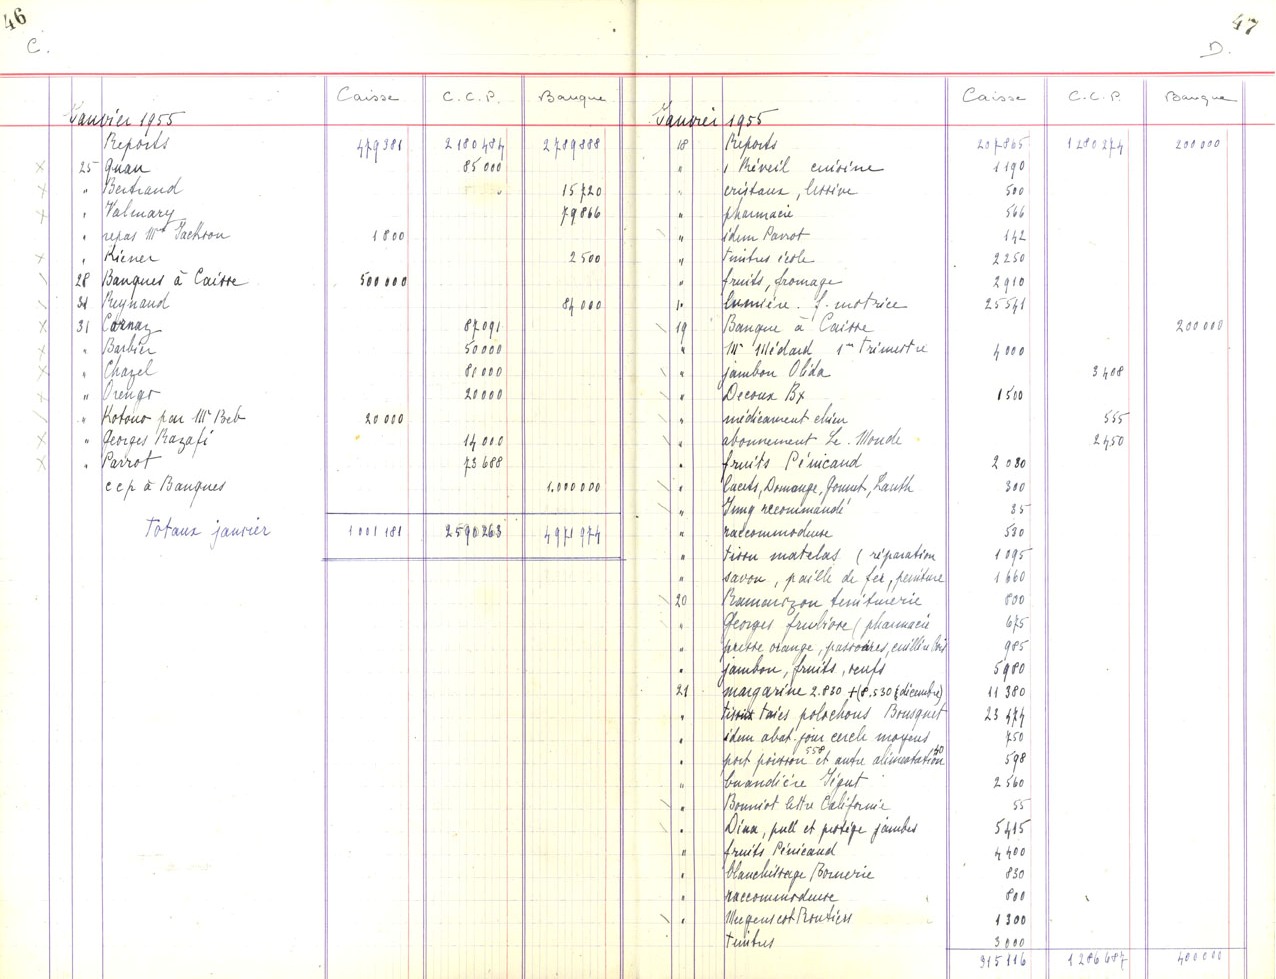 46
C.
Caisse C.C.P. Banque
Janvier 1955
Reports 479381 2180484 2789888
25 Quan 85000
" Bertrand 15720
" Valmary 79866
" repas Mr Jackson 1800
" Kiener 2500
28 Banques à Caisse 500000
31 Reynaud 84000
31 Cornaz 87091
" Barbier 50000
" Chazel 81000
" Orengo 20000
" Kotono par Mr Beb 20000
" Georges Razafi 14000
" Parrot 73688
ccp à Banques 1.000000
Totaux janvier 1001181 2590263 4971974
47
D.
Caisse C.C.P. Banque
Janvier 1955
18 Reports 207865 1280274 200000
" 1 Réveil cuisine 1190
" cristaux, lessive 500
" pharmacie 566
" idem Parrot 142
" timbres école 2250
" fruits, fromage 2910
" lumière. f. motrice 25541
19 Banque à Caisse 200000
" Mr Médard 1er Trimestre 4000
" jambon Olida 3408
" Decoux Bx 1500
" médicament chien 555
" abonnement Le Monde 2450
" fruits Pénicaud 2080
" lacets, Domange, Jonnut, Zauth 300
" Jung recommandé 85
" raccommodeuse 530
" tissu matelas (réparation 1095
" savon, paille de fer, peinture 1660
20 teinturerie 800
" Georges (pharmacie 675
" presse orange, passoires, cuillère bois 985
" jambon, fruits, oeufs 5980
21 margarine 2.830 + (8.530 décembre) 11380
" tissus taies polochons Bousquet 23474
" idem abat-jour cercle moyens 750
" port poisson 558 et autre alimentation 40 598
" buandière Tigut 2560
" Bonniot lettre Californie 55
" Dina, pull et protège jambes 5415
" fruits Pénicaud 4400
" blanchissage Bonnerie 830
" raccommodeuse 800
" Routiers 1300
timbres 3000
315116 1286687 400000